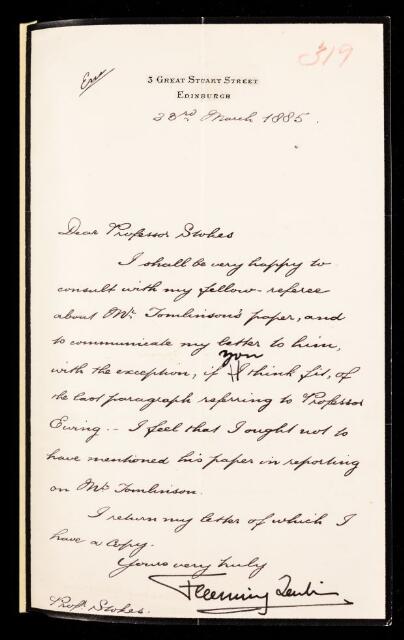 319
3 GREAT STUART STREET
EDINBURGH
23rd March 1885.
Dear Professor Stokes
I shall be very happy to
consult with my fellow-referee
about Mr. Tomlinson's paper, and
to communicate my letter to him,
you
with the exception, if I think fit, of
the last paragraph referring to Professor
Ewing. - I feel that I ought not to
have mentioned his paper in reporting
on Mr. Tomlinson.
I return my letter of which I
have a copy.
Yours very truly
Fleeming Jenkin
Profr. Stokes.